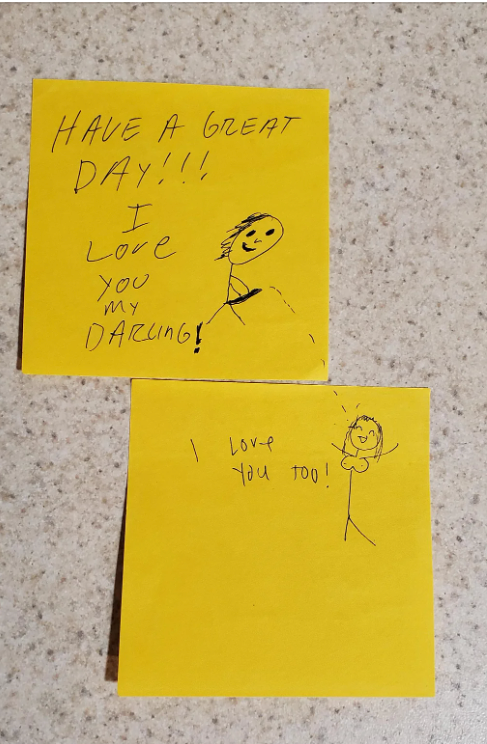 HAVE A GREAT
DAY!!!
I
Love
you
my
DARLING!
I Love
you too!